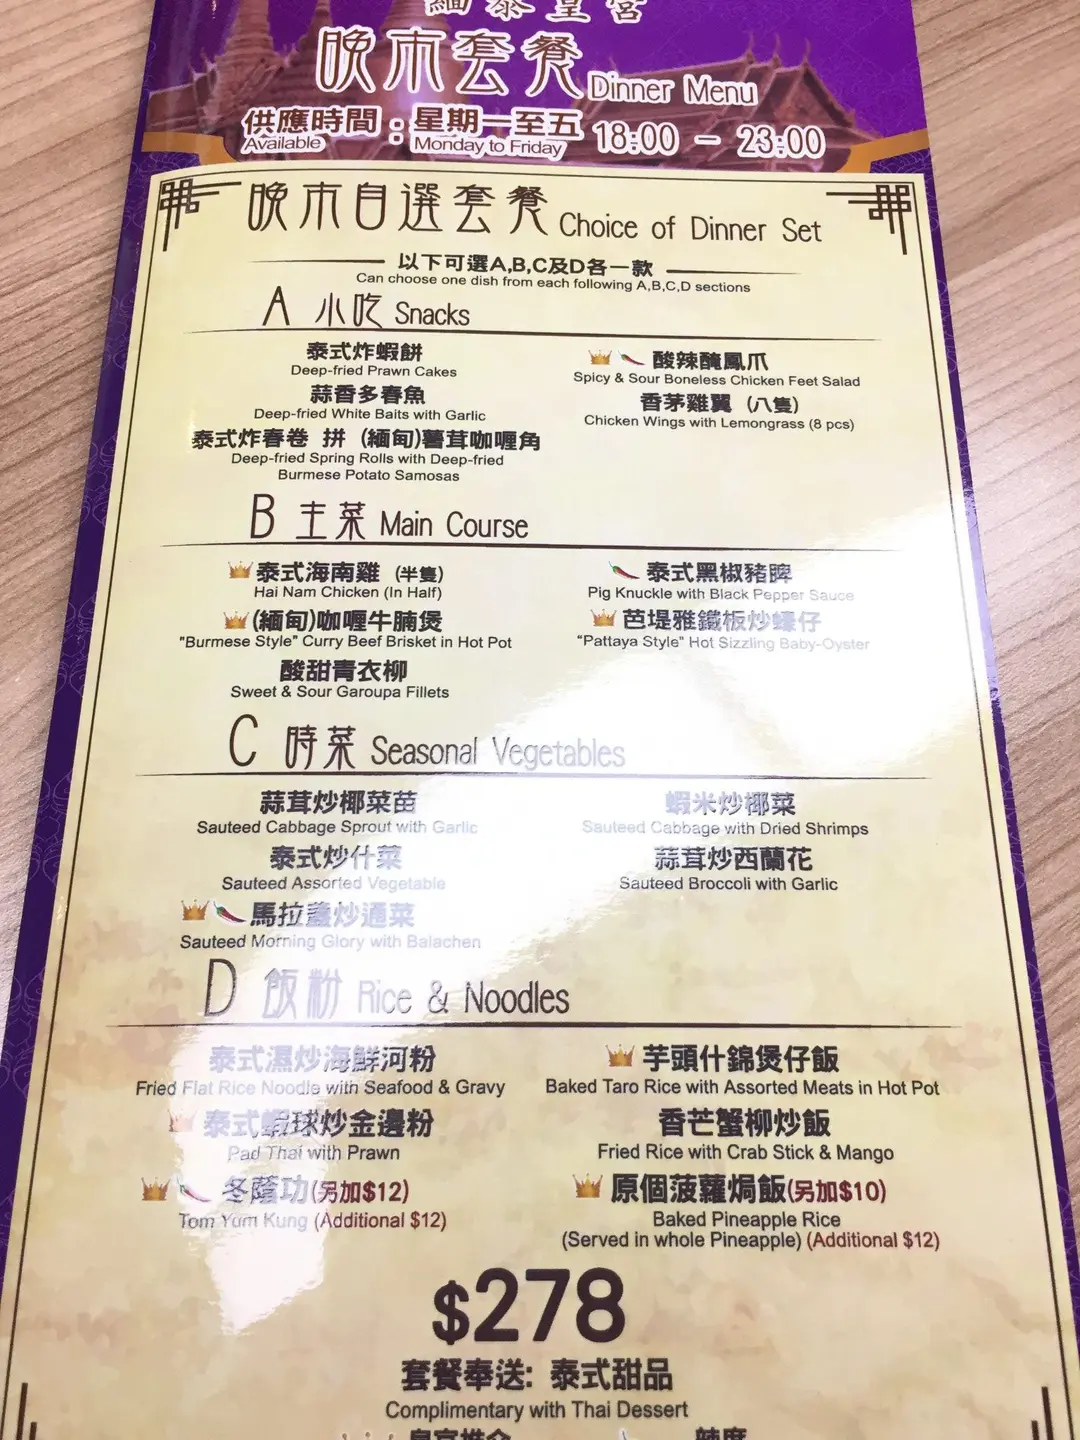 緬泰皇宮
晚市套餐 Dinner Menu
供應時間：星期一至五 18:00 - 23:00
Available Monday to Friday
晚市自選套餐 Choice of Dinner Set
以下可選A,B,C及D各一款
Can choose one dish from each following A,B,C,D sections
A 小吃 Snacks
泰式炸蝦餅
Deep-fried Prawn Cakes
蒜香多春魚
Deep-fried White Baits with Garlic
泰式炸春卷 拼 (緬甸)薯茸咖喱角
Deep-fried Spring Rolls with Deep-fried
Burmese Potato Samosas
酸辣醃鳳爪
Spicy & Sour Boneless Chicken Feet Salad
香茅雞翼 (八隻)
Chicken Wings with Lemongrass (8 pcs)
B 主菜 Main Course
泰式海南雞 (半隻)
Hai Nam Chicken (In Half)
(緬甸)咖喱牛腩煲
"Burmese Style" Curry Beef Brisket in Hot Pot
酸甜青衣柳
Sweet & Sour Garoupa Fillets
泰式黑椒豬脾
Pig Knuckle with Black Pepper Sauce
芭堤雅鐵板炒蠔仔
"Pattaya Style" Hot Sizzling Baby-Oyster
C 時菜 Seasonal Vegetables
蒜茸炒椰菜苗
Sauteed Cabbage Sprout with Garlic
泰式炒什菜
Sauteed Assorted Vegetable
馬拉盞炒通菜
Sauteed Morning Glory with Balachen
蝦米炒椰菜
Sauteed Cabbage with Dried Shrimps
蒜茸炒西蘭花
Sauteed Broccoli with Garlic
D 飯粉 Rice & Noodles
泰式濕炒海鮮河粉
Fried Flat Rice Noodle with Seafood & Gravy
泰式蝦球炒金邊粉
Pad Thai with Prawn
冬蔭功(另加$12)
Tom Yum Kung (Additional $12)
芋頭什錦煲仔飯
Baked Taro Rice with Assorted Meats in Hot Pot
香芒蟹柳炒飯
Fried Rice with Crab Stick & Mango
原個菠蘿焗飯(另加$10)
Baked Pineapple Rice
(Served in whole Pineapple) (Additional $12)
$278
套餐奉送: 泰式甜品
Complimentary with Thai Dessert
皇宮推介 辣度